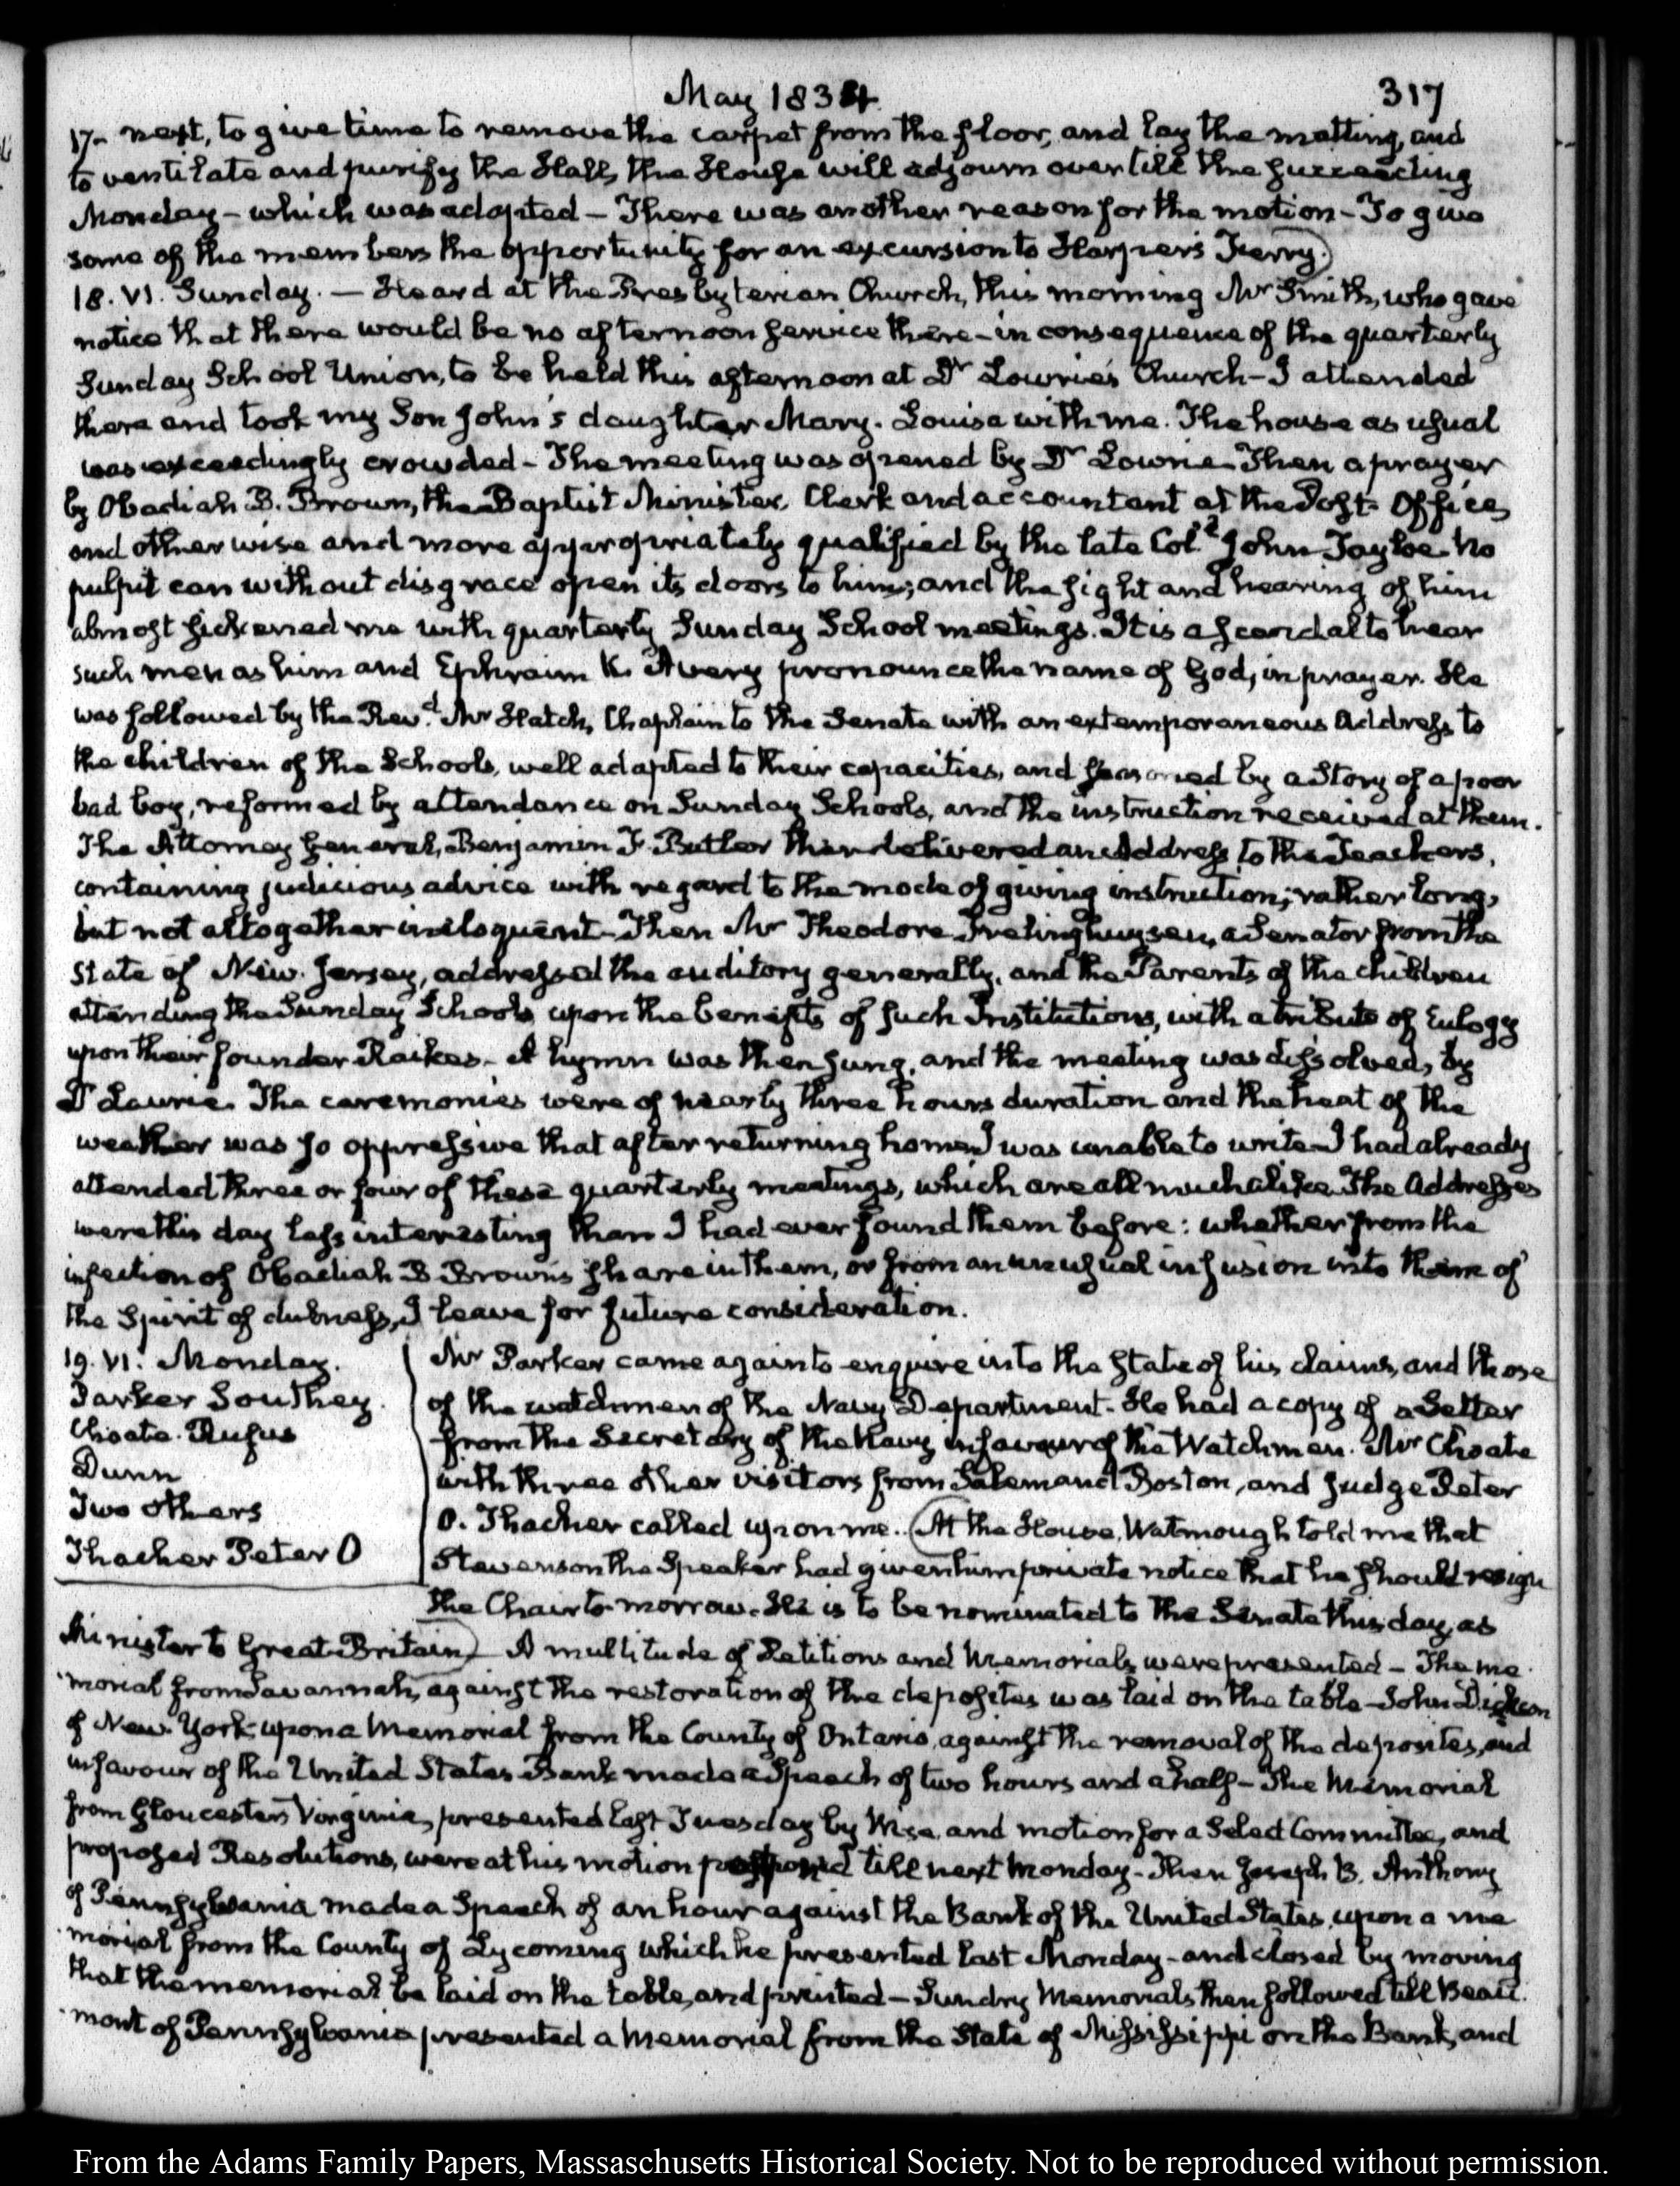 May 1834. 317
17- next, to give time to remove the carpet from the floor, and lay the matting, and
to ventilate and purify the Hall, the House will adjourn over till the succeeding
Monday – which was adopted – There was another reason for the motion – To give
some of the members the opportunity for an excursion to Harper's Ferry.)
18. VI. Sunday. — Heard at the Presbyterian Church, this morning Mr Smith, who gave
notice that there would be no afternoon service there – in consequence of the quarterly
Sunday School Union, to be held this afternoon at Dr Lowrie's Church – I attended
there and took my Son John's daughter Mary. Louisa with me. The house as usual
was exceedingly crowded – The meeting was opened by Dr Lowrie – Then a prayer
by Obadiah B. Brown, the Baptist Minister, Clerk and accountant at the Post-Office,
and otherwise and more appropriately qualified by the late Coll John Tayloe. No
pulpit can without disgrace open its doors to him; and the sight and hearing of him
almost sickened me with quarterly Sunday School meetings. It is a scandal to hear
such men as him and Ephraim K. Avery pronounce the name of God, in prayer. He
was followed by the Revd. Mr Hatch, Chaplain to the Senate with an extemporaneous Address to
the children of the Schools, well adapted to their capacities, and seasoned by a Story of a poor
bad boy, reformed by attendance on Sunday Schools, and the instruction received at them.
The Attorney General, Benjamin F. Butler then delivered an Address to the Teachers,
containing judicious advice with regard to the mode of giving instruction; rather long,
but not altogether ineloquent – Then Mr Theodore Frelinghuysen, a Senator from the
State of New. Jersey, addressed the auditory generally, and the Parents of the children
attending the Sunday Schools upon the benefits of such Institutions, with a tribute of Eulogy
upon their founder Raikes – A hymn was then sung, and the meeting was dissolved, by
Dr Laurie. The ceremonies were of nearly three hours duration and the heat of the
weather was so oppressive that after returning home I was unable to write – I had already
attended three or four of these quarterly meetings, which are all much alike. The Addresses
were this day less interesting than I had ever found them before: whether from the
infection of Obadiah B Brown's share in them, or from an unusual infusion into them of
the Spirit of dulness, I leave for future consideration.
19. VI. Monday.
Parker Southey.
Choate. Rufus
Dunn
Two others
Thacher Peter O
Mr Parker came again to enquire into the State of his claims, and those
of the watchmen of the Navy Department. He had a copy of a Letter
from the Secretary of the Navy in favour of the Watchmen. Mr Choate
with three other visitors from Salem and Boston, and Judge Peter
O. Thacher called upon me. (At the House, Watmough told me that
Stevenson the Speaker had given him private notice that he should resign
the Chair to-morrow. He is to be nominated to the Senate this day, as
Minister to Great-Britain) A multitude of Petitions and Memorials were presented – The me
morial from Savannah, against the restoration of the deposites was laid on the table – John Dickson
of New York upon a Memorial from the County of Ontario, against the removal of the deposites, and
in favour of the United States Bank made a Speech of two hours and a half – The Memorial
from Gloucester, Virginia, presented last Tuesday by Wise, and motion for a Select Committee, and
proposed Resolutions, were at his motion postponed till next Monday – Then Joseph B. Anthony
of Pennsylvania made a Speech of an hour against the Bank of the United States, upon a me
morial from the County of Lycoming which he presented last Monday – and closed by moving
that the memorial be laid on the table, and printed – Sundry Memorials then followed till Beau
mont of Pennsylvania presented a Memorial from the State of Mississippi on the Bank, and
From the Adams Family Papers, Massachusetts Historical Society. Not to be reproduced without permission.